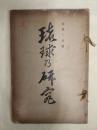 琉球乃研究